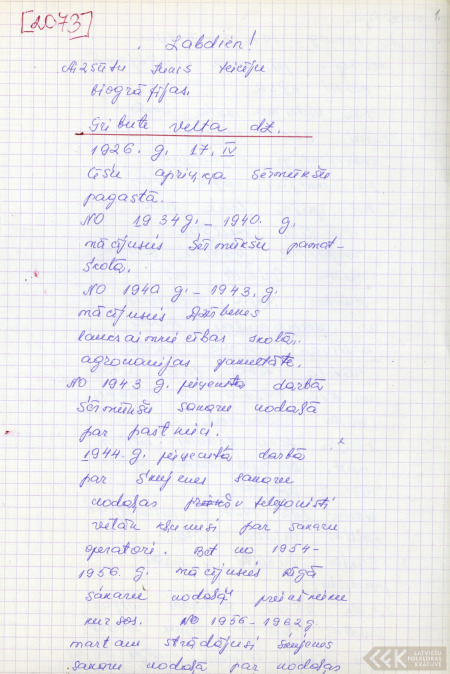 [2073]
1.
Labdien!
Aizsūtu Jums teicēju
biogrāfijas.
Gribute Velta dz.
1926. g. 17. IV
Cēsu apriņķa Sērmūkšu
pagastā.
No 1934 g. - 1940. g.
mācījusies Sērmūkšu pamat-
skolā.
No 1940 g. - 1943. g.
mācījusies Dzērbenes
lauksaimniecības skolā,
agronomijas
No 1943 g. pieņemta darbā
Sērmūkšu sakaru nodaļā
par pastnieci.
1944. g. pieņemta darbā
par Skujenes sakaru
nodaļas telefonisti
vēlāk kļuvusi par sakaru
operatori. Bet no 1954-
1956. g. mācījusies Rīgā
sakaru nodaļā priekšnieku
kursos. No 1956-1962 g.
martam strādājusi Skujenes
sakaru nodaļā par nodaļas
LATVIEŠU
FOLKLORAS
KRĀTUVE